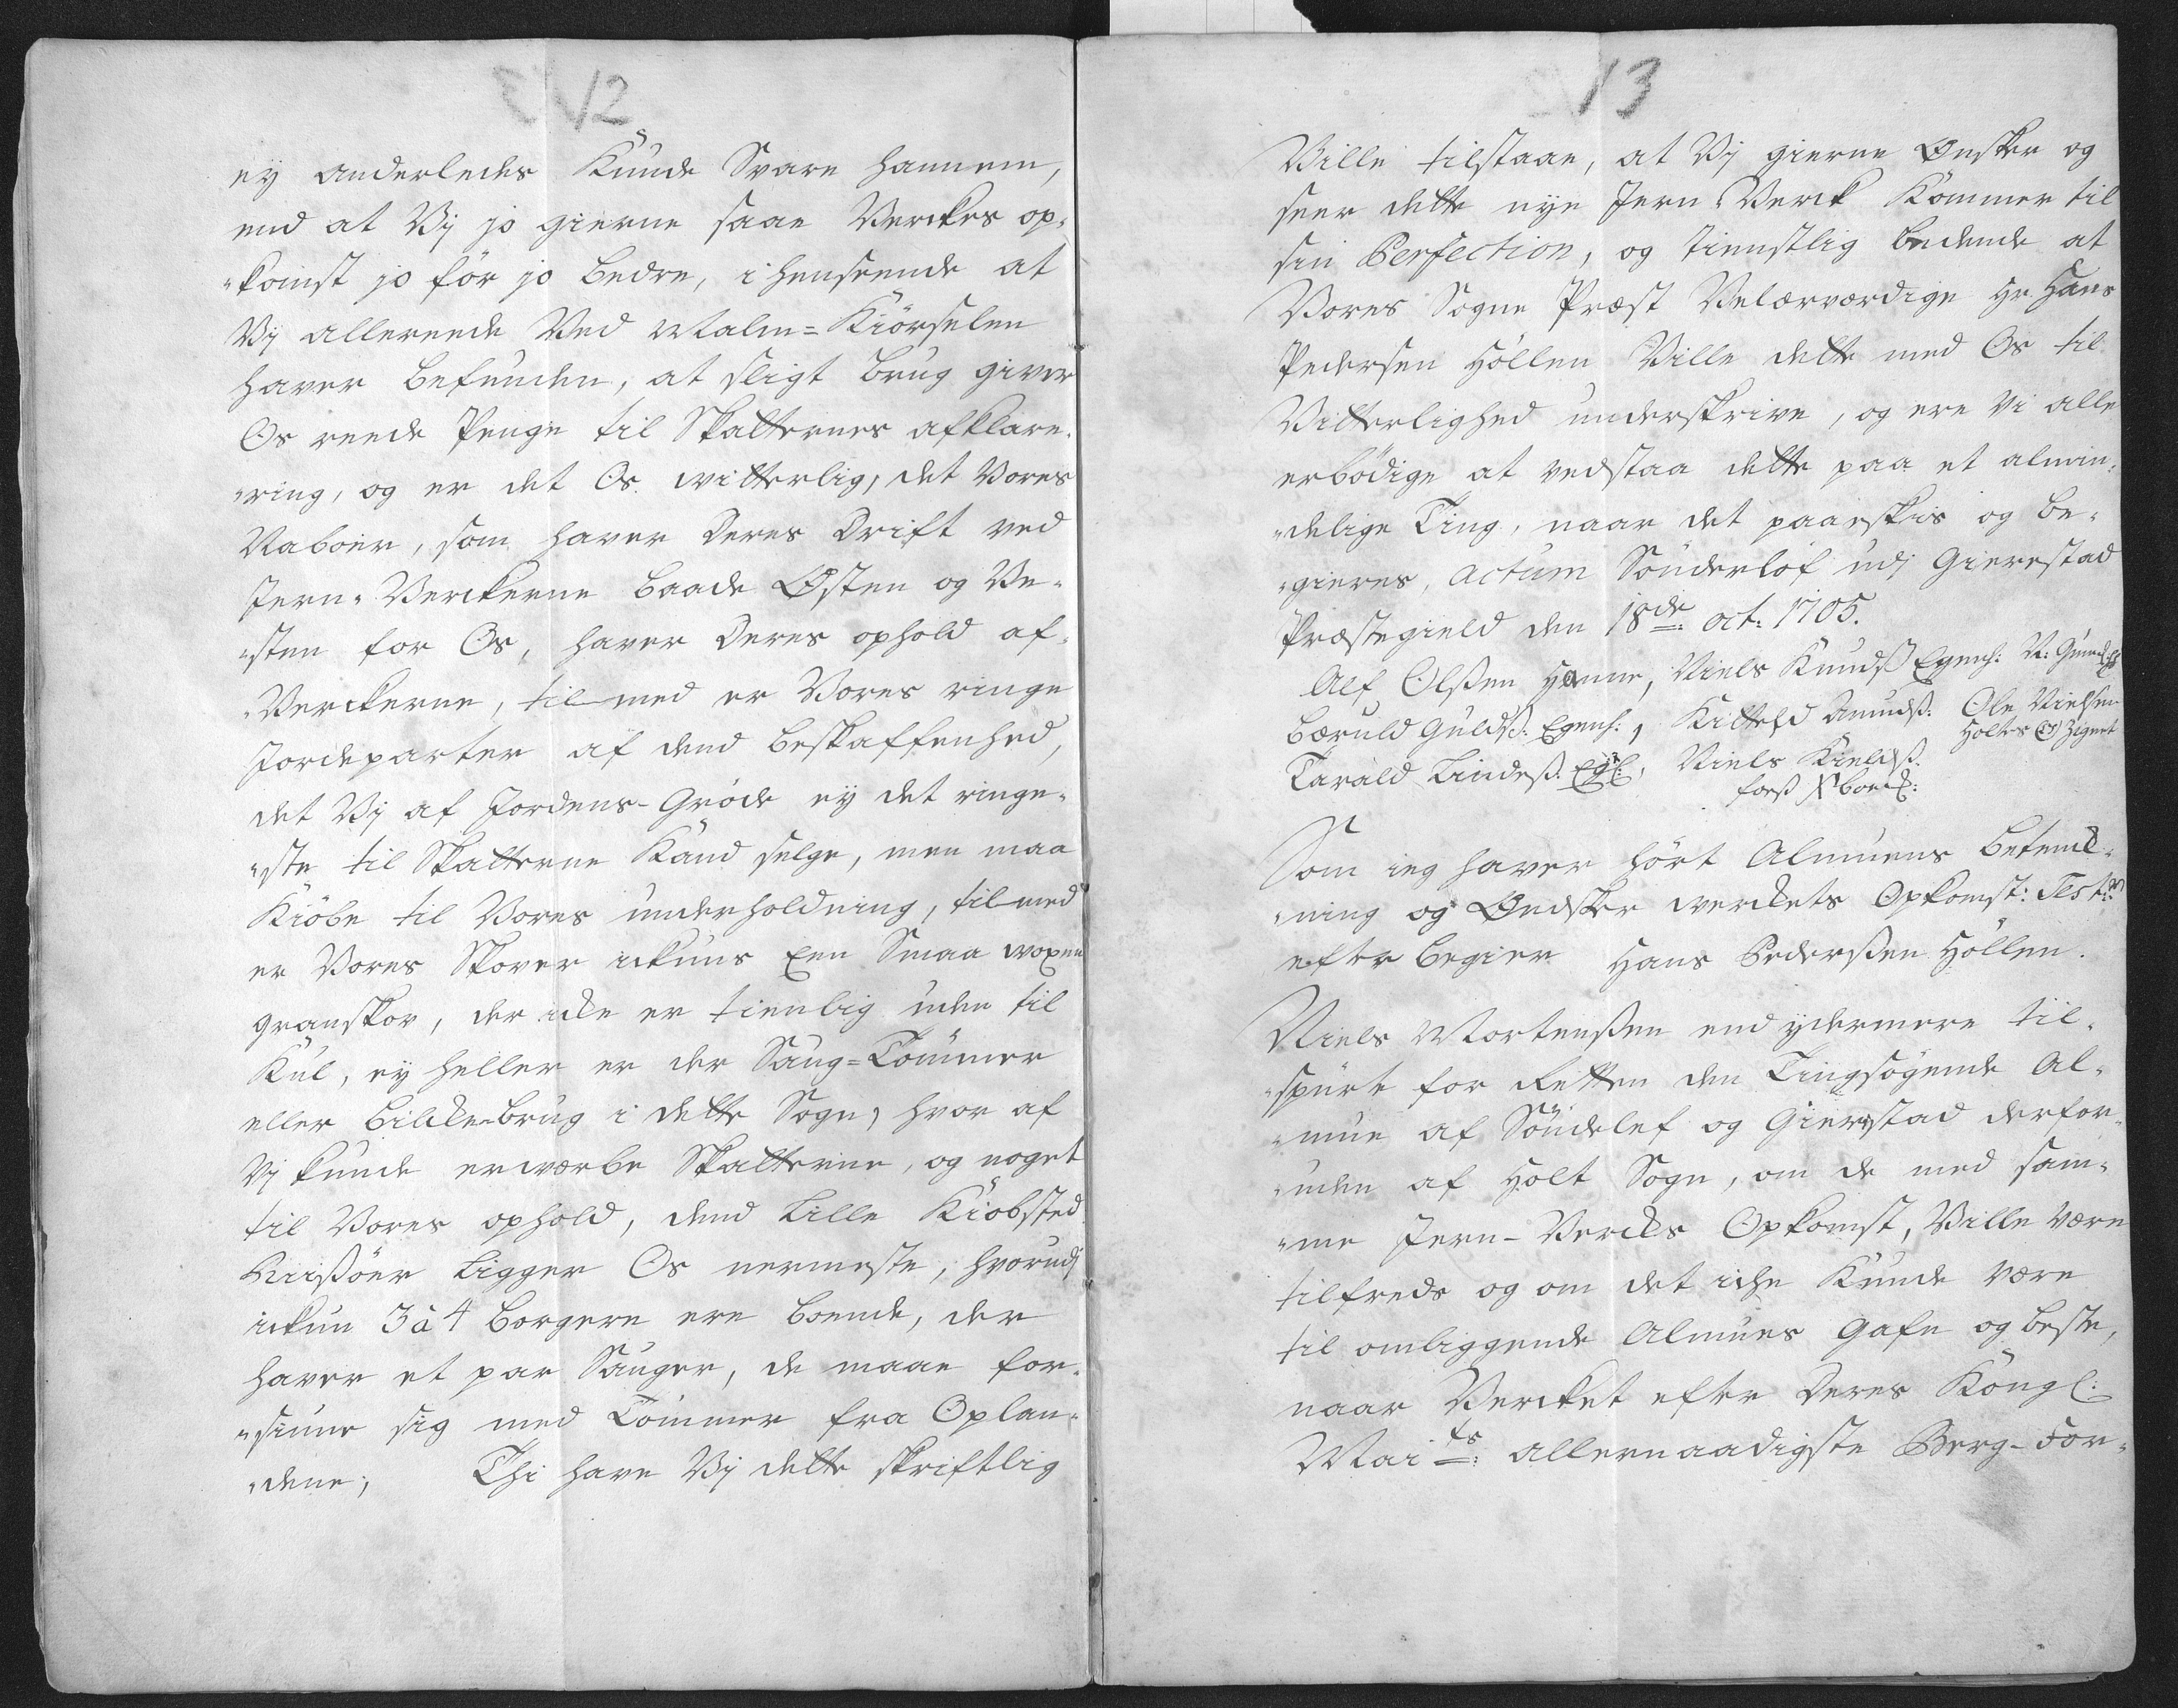 12
ey anderledes Kunde Svare hannem,
end at Vij jo gierne saae Verckes op-
-komst jo för jo bedre, i henseende at
Vij allereede Ved Malm=Kiörselen
haver befunden, at sligt brug giver
Os reede Penge til Skatternes afklare-
-ring, og er det Os witterlig, det Vores
Naboer, som haver Deres Drift ved
Jern-Verckerne baade Østen og Ve-
-sten for Os, haver Deres ophold af-
-Verckerne, til med er Vores ringe
Jordeparter af dend beskaffenhed,
det Vij af Jordens-Gröde ey det ringe-
-ste til Skatterne Kand selge, men maa
Kiöbe til Vores underholdning, til med
er Vores Skover ickuns Een Smaa woxen
granskov, der icke er tienlig uden til
Kul, ey heller er der Saug=Tömmer
eller bielcke-brug i dette Sogn, hvor af
Vij kunde erwærbe Skatterne, og noget
til Vores ophold, dend Lille Kiöbsted
Riisöer Ligger Os nermeste, hvorudj
ickun 3 à 4 borgere ere boende, der
haver et par Sauger, de maae for-
-siune sig med Tömmer fra Oplan-
-dene, Thi have Vij dette skriftlig
13
Ville tilstaae, at Vij gierne Ønsker og
seer dette nye Jern-Verck Kommer til
sin Perfection, og tienstlig bedende at
Vores Sogne Præst Velærværdige Hr. Hans
Pedersen Höllen Ville dette med Os til
Vitterlighed underskrive, og ere Vi alle
erbödige at vedstaa dette paa et almin-
-delige Ting, naar det paaeskis og be-
-gieres, actum Sönderlöf udj Gierestad
Præstegield den 18de: oct: 1705.
Alf Olßen Hanne, Niels Knudß Egenh: N:
Bæruld Guldß: Egenh:, Kittehd Amundß. Ole Nielsen
Tarald Lindeß. Egh:, Niels Kieldß. Holtes Zignet
Som ieg haver hört Almuens betenck-
-ning og Ændsker werckets Opkomst: Test:r
efter begier Hans Pederßen Höllen.
Niels Mortenßen end ydermere til-
-spurte for Retten den Tingsögende Al-
-mue af Söndelef og Gierrestad derfor-
-uden af Holt Sogn, om de med sam-
-me Jern-Vercks Opkomst, Ville Være
tilfreds og om det iche Kunde Være
til omliggende Almues Gafn og beste,
naar Vercket efter Deres Kongl:
Mai ts: allernaadigste Berg-For-